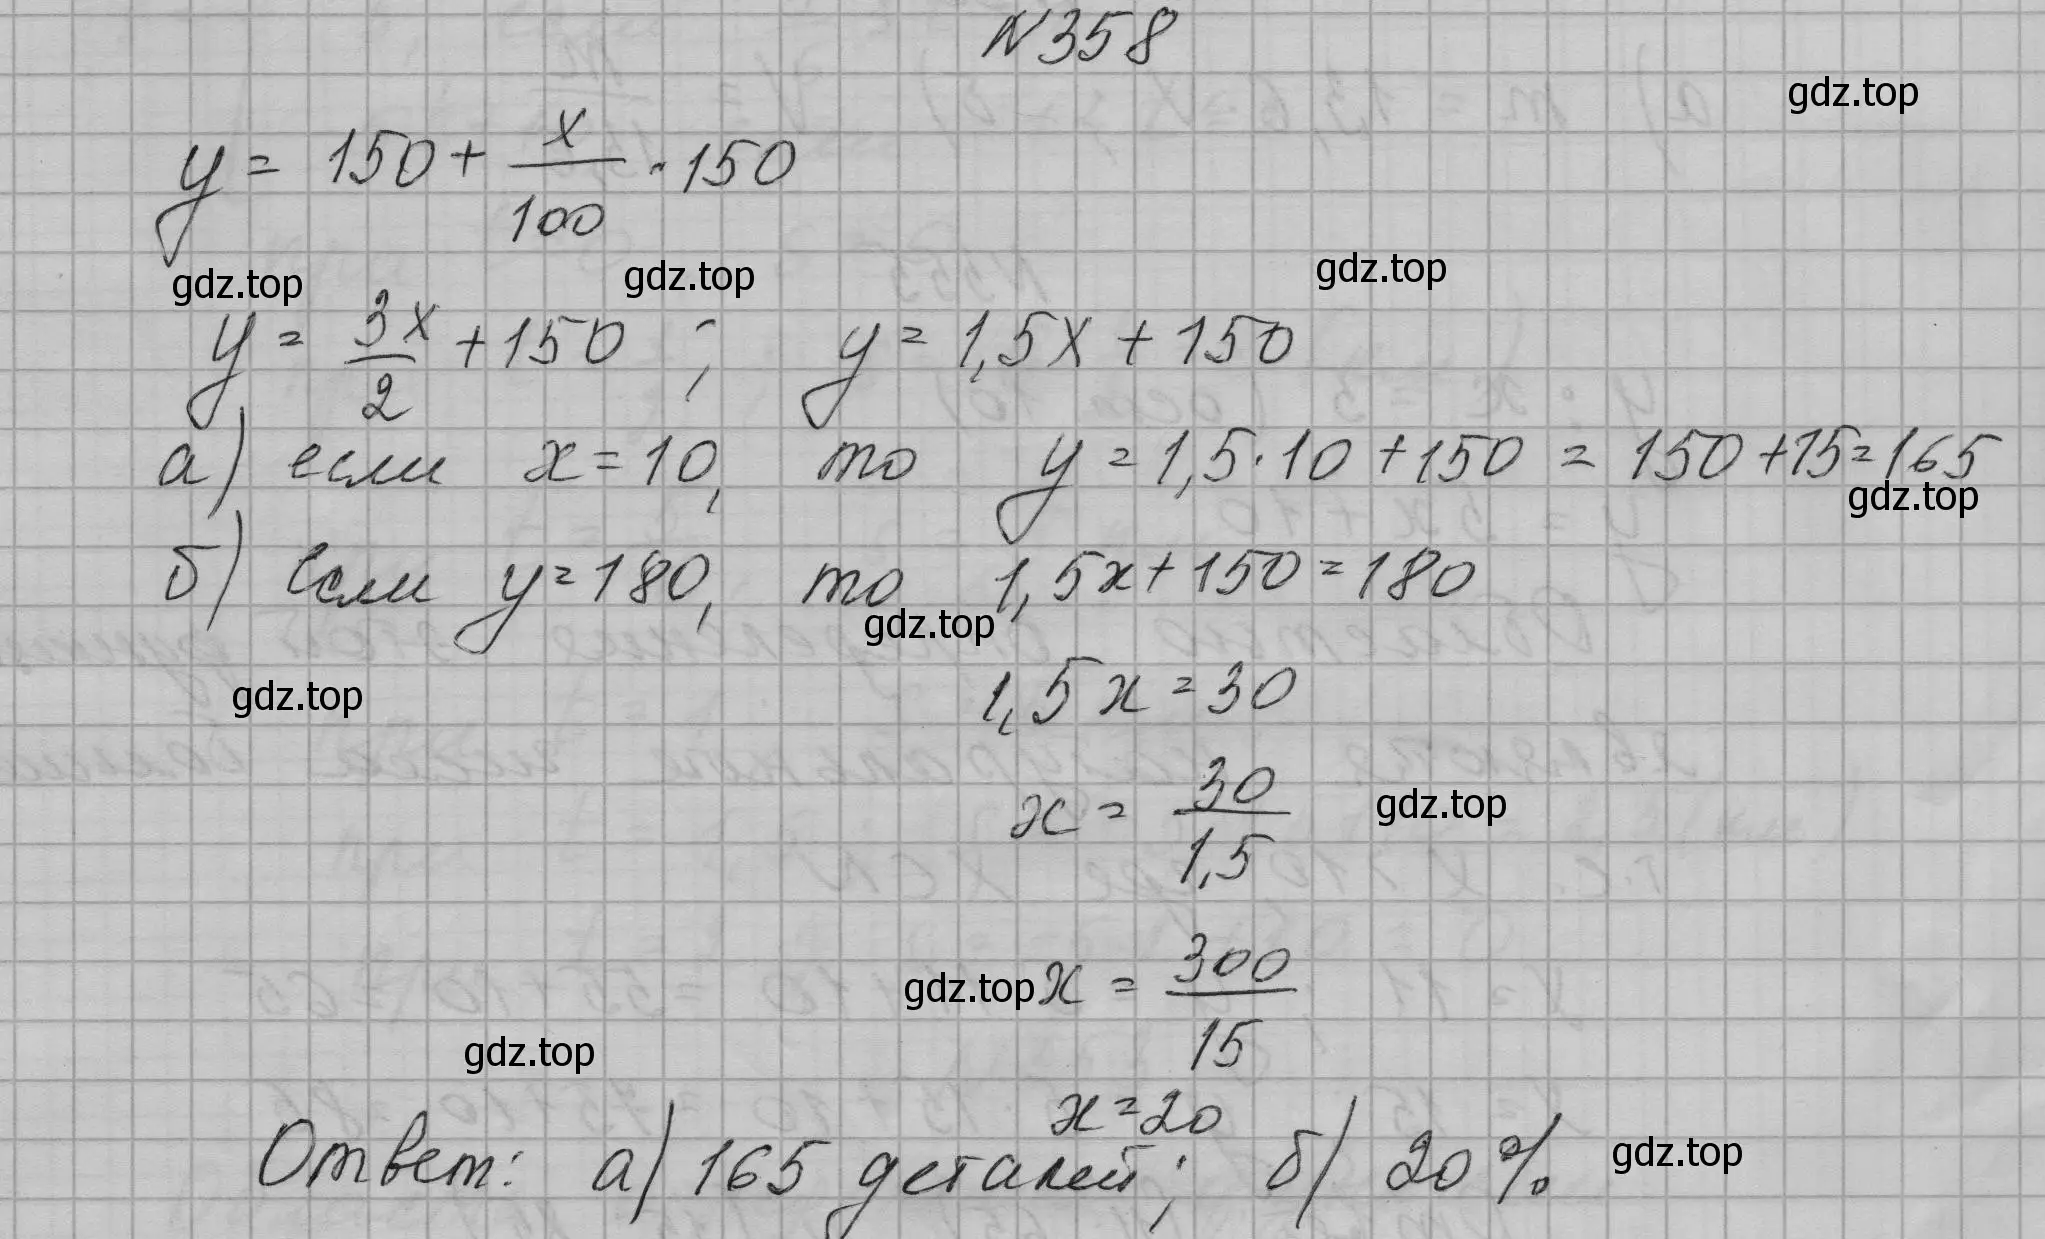 N358
gdz.top
y = 150 + x/100 · 150
gdz.top gdz.top gdz.top
y = 3x/2 + 150 ; y = 1,5x + 150
а) если x = 10, то y = 1,5·10 + 150 = 150 + 15 = 165
gdz.top
б) Если y = 180, то 1,5x + 150 = 180
gdz.top
gdz.top 1,5x = 30
x = 30/1,5 gdz.top
gdz.top x = 300/15
gdz.top
x = 20
Ответ: а) 165 деталей; б) 20%. gdz.top